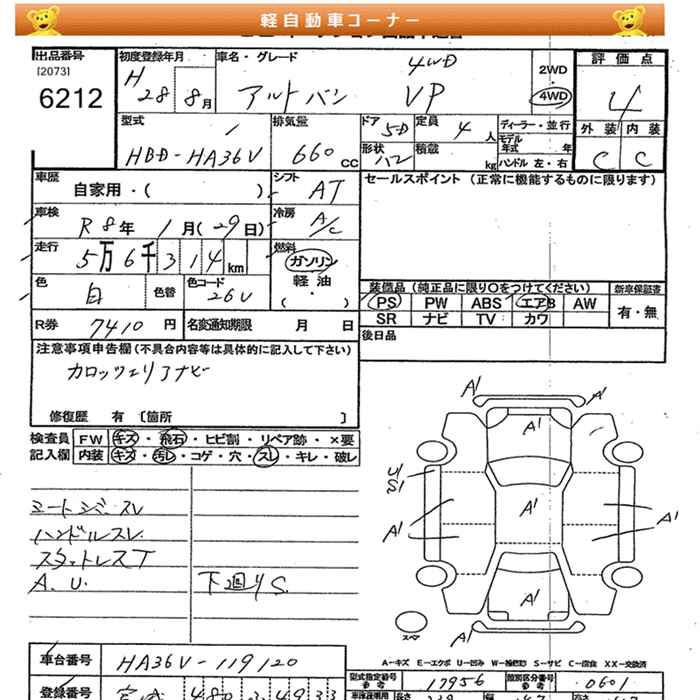 軽自動車コーナー
出品番号 初度登録年月 車名・グレード 4WD 2WD 評価点
[2073] H 28 8月 アルトバン VP 4WD 4
6212
型式 排気量 ドア 5D 定員 4人 ディーラー・並行 外装 内装
HBD-HA36V 660cc 形状 バン 積載 kg モデル年式 年 C C
ハンドル 左・右
車歴 自家用・( ) シフト AT セールスポイント (正常に機能するものに限ります)
車検 R 8年 1月(29日) 冷房 A/C
走行 5万6千314km 燃料 ガソリン
軽油
( ・ )
色 白 色替 色コード 26U
装備品 (純正品に限り○をつけてください) 新車保証書
PS PW ABS エアB AW 有・無
SR ナビ TV カワ
R券 7410円 名変通知期限 月 日 後日品
注意事項申告欄 (不具合内容等は具体的に記入して下さい)
カロッツェリアナビ
修復歴 有 [箇所 ]
検査員 FW キズ・飛石・ヒビ割・リペア跡・×要
記入欄 内装 キズ・汚レ・コゲ・穴・スレ・キレ・破レ
A1 A1
A1
U1
S1
A1 A1 A1
A1
A1
スペア
ハンドルスレ
スタットレスT
A.U. 下廻りS
A-キズ E-エクボ U-凹み W-補修跡 S-サビ C-腐食 XX-交換済
車台番号 HA36V-119120
型式指定番号 17956 類別区分番号 0601
登録番号 宮城 480